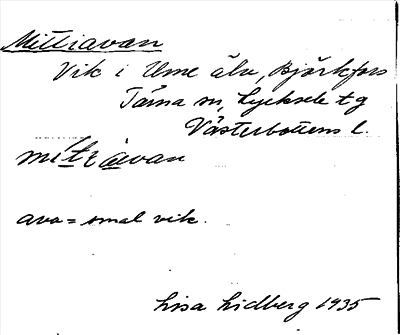 Mittiavan
Vik i Ume älv, Björkfors
Tärna sn, Lycksele tg
Västerbottens l.
mitriavan
ava = smal vik.
Lisa Lidberg 1935